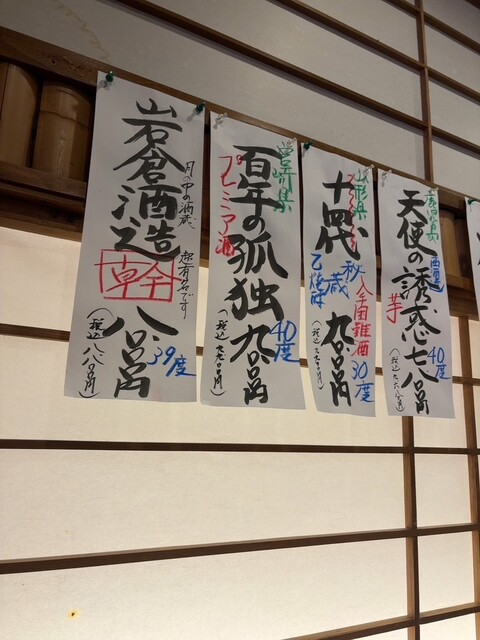 岩倉酒造
月の中の酒蔵、
超有名です
39度
八〇〇円
(税込八八〇円)
宮崎県
百年の孤独
プレミア酒
40度
九〇〇円
(税込九九〇円)
山形県
十四代
秘蔵
乙焼酎
入手困難酒
30度
九〇〇円
(税込九九〇円)
鹿児島県
西酒造
天使の誘惑
芋
40度
七八〇円